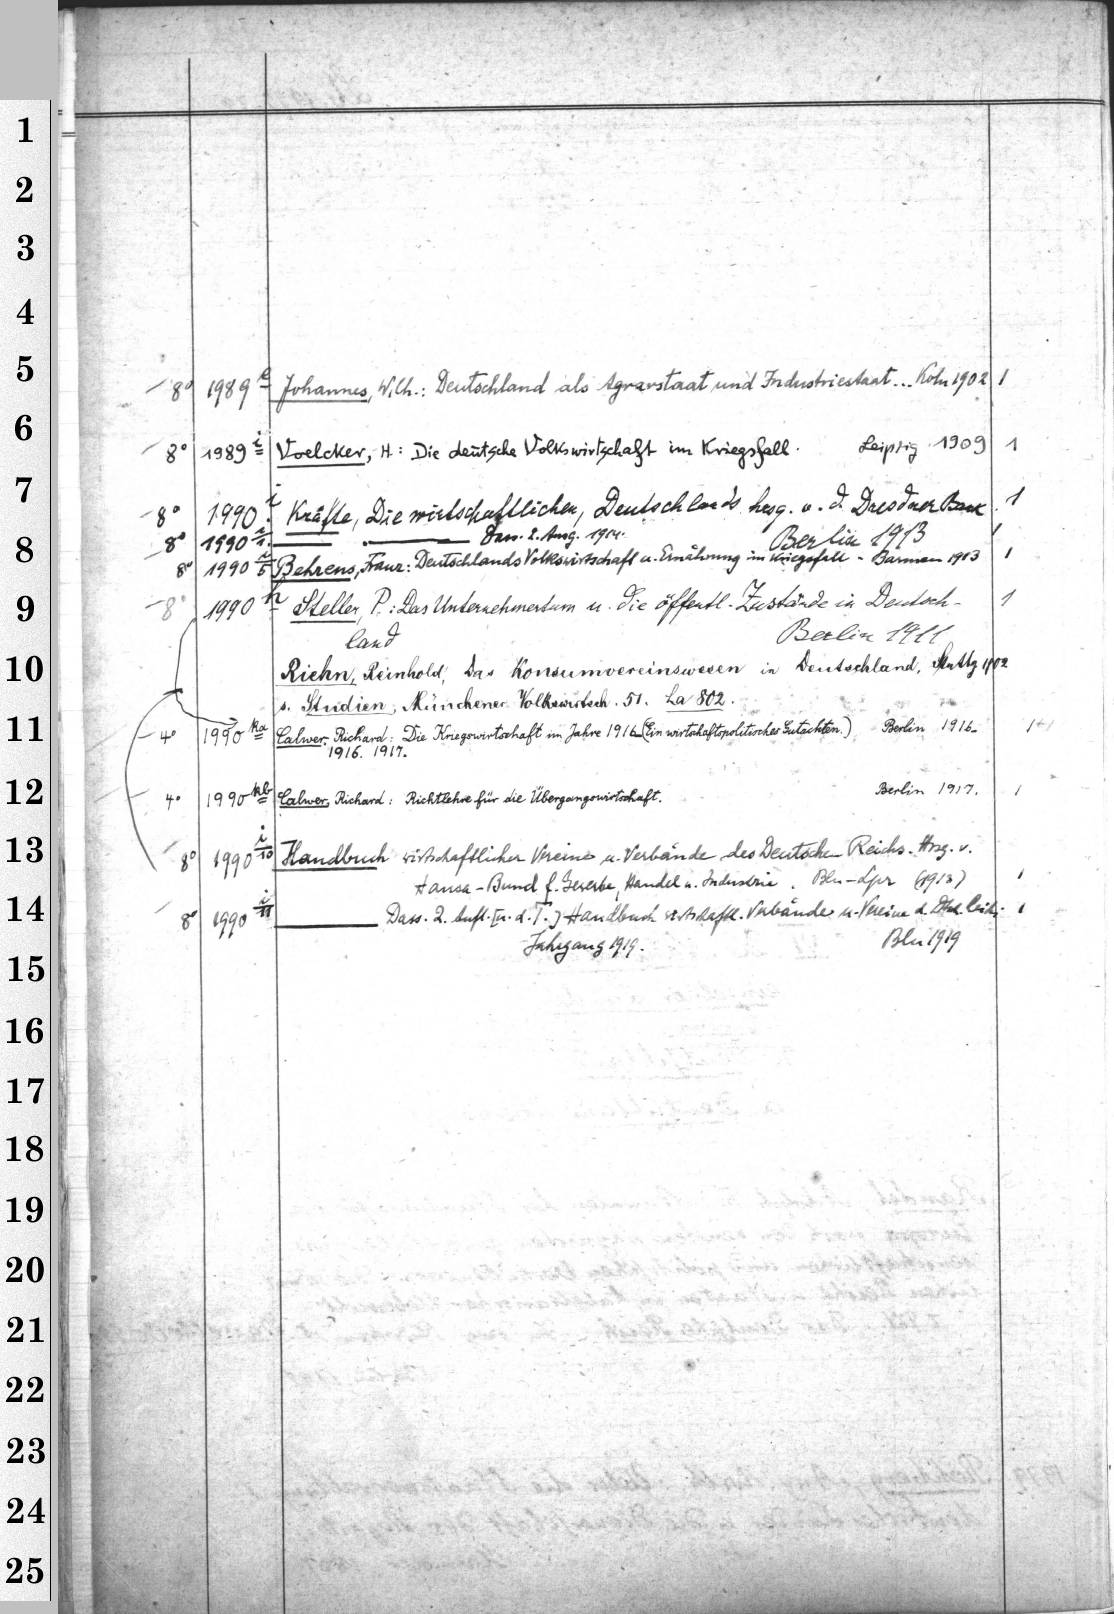 1
2
3
4
5
8° 1989 e Johannes, Wilh.: Deutschland als Agrarstaat und Industriestaat... Köln 1902 1
6
8° 1989 i Voelcker, H: Die deutsche Volkswirtschaft im Kriegsfall. Leipzig 1909 1
7
8° 1990 i Kräfte, Die wirtschaftlichen, Deutschlands hrsg. v. d. Dresdner Bank. 1
Berlin 1913
8
8° 1990 i/1. Dass. 2. Ausg. 1
8° 1990 i/5 Behrens, Franz: Deutschlands Volkswirtschaft u. Ernährung im Kriegsfall - Barmen 1913 1
9
8° 1990 k Steller, P.: Das Unternehmertum u. die öffentl. Zustände in Deutsch- 1
land Berlin 1911
10
Riehn, Reinhold, Das Konsumvereinswesen in Deutschland, Stuttg 1902
s. Studien, Münchener Volkswirtsch. 51. La 802.
11
4° 1990 ka Calwer, Richard: Die Kriegswirtschaft im Jahre 1916 (Ein wirtschaftspolitisches Gutachten.) Berlin 1916. 1+1
1916. 1917.
12
4° 1990 kb Calwer, Richard: Richtlehre für die Übergangswirtschaft. Berlin 1917. 1
13
8° 1990 i/10 Handbuch wirtschaftlicher Vereine u. Verbände des Deutschen Reichs. Hrsg. v.
Hansa-Bund f. Gewerbe, Handel u. Industrie. Bln-Lpz (1913) 1
14
8° 1990 i/11 Dass. 2. Aufl. [u. d. T.] Handbuch wirtschaftl. Verbände u. Vereine d. Dtsch. Reichs. 1
Jahrgang 1919. Bln 1919
15
16
17
18
19
20
21
22
23
24
25